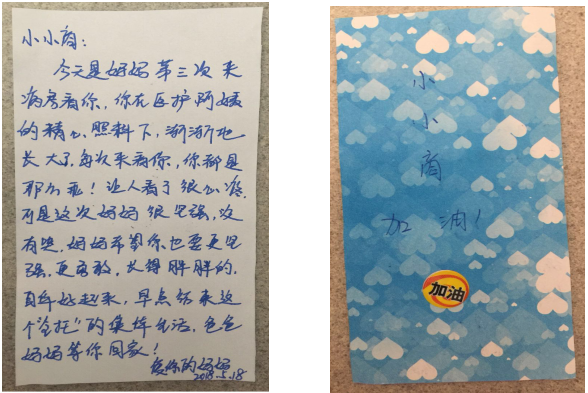 小小商：
今天是妈妈第三次来
病房看你，你在医护阿姨
的精心照料下，渐渐地
长大了，每次来看你，你都是
那么乖！让人看了很心疼，
可是这次妈妈很坚强，没
有哭，妈妈希望你也要更坚
强，更勇敢，长得胖胖的，
早点结束这
个"全托"的集体生活，爸爸
妈妈等你回家！
爱你的妈妈
2018.5.18
小
小
商
加油！
加油